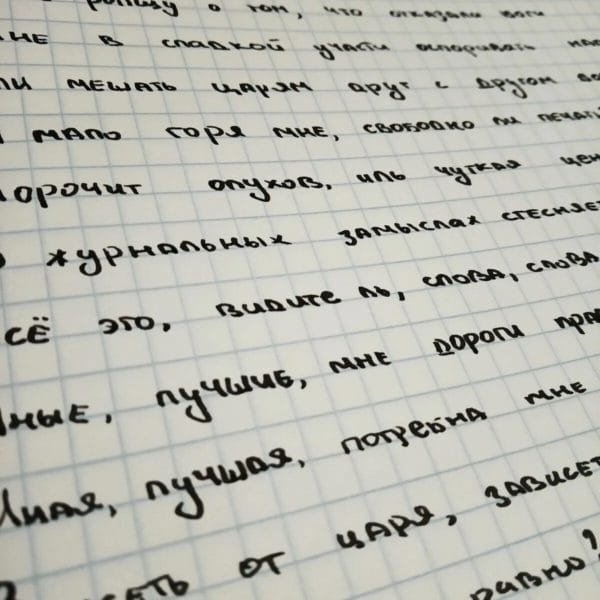 ропщу о том, что отказали боги
мне в сладкой участи оспоривать нал
ли мешать царям друг с другом во
мало горя мне, свободно ли печат
орочит олухов, иль чуткая цен
журнальных замыслах стесняет
сё это, видите ль, слова, слова
ные, лучшие, мне дороги пра
Иная, лучшая, потребна мне
сеть от царя, зависет
равно?